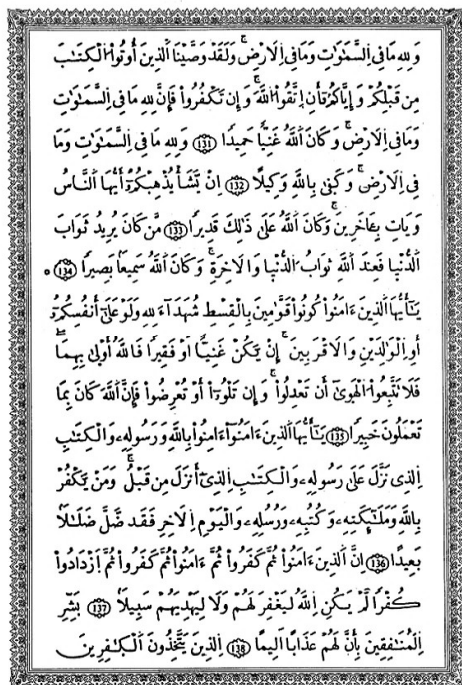 وَلِلهِ مَا فِى اِلسَّمَٰوَٰتِ وَمَا فِى اِلَارْضِ وَلَقَدْ وَصَّيْنَا اَلذِينَ أُوتُواْ اُلْكِتَٰبَ
مِن قَبْلِكُمْ وَإِيَّاكُمُۥٓ أَنِ اِتَّقُواْ اُللَّهَ وَإِن تَكْفُرُواْ فَإِنَّ لِلهِ مَا فِى اِلسَّمَٰوَٰتِ
وَمَا فِى اِلَارْضِ وَكَانَ اَللَّهُ غَنِيّاً حَمِيداً 131 وَلِلهِ مَا فِى اِلسَّمَٰوَٰتِ وَمَا
فِى اِلَارْضِ وَكَفٜىٰ بِاللَّهِ وَكِيلاً 132 اِنْ يَّشَأْ يُذْهِبْكُمُۥٓ أَيُّهَا اَلنَّاسُ
وَيَاتِ بِـَٔاخَرِينَ وَكَانَ اَللَّهُ عَلَىٰ ذَٰلِكَ قَدِيراً 133 مَّن كَانَ يُرِيدُ ثَوَابَ
اَلدُّنْيَا فَعِندَ اَللَّهِ ثَوَابُ اُلدُّنْيَا وَالَاخِرَةِ وَكَانَ اَللَّهُ سَمِيعاً بَصِيراً 134
يَٰٓأَيُّهَا اَلذِينَ ءَامَنُواْ كُونُواْ قَوَّٰمِينَ بِالْقِسْطِ شُهَدَآءَ لِلهِ وَلَوْ عَلَىٰٓ أَنفُسِكُمُۥٓ
أَوِ اِلْوَٰلِدَيْنِ وَالَاقْرَبِينَ إِنْ يَّكُنْ غَنِيّاً اَوْ فَقِيراً فَاللَّهُ أَوْلَىٰ بِهِمَا
فَلَا تَتَّبِعُواْ اُلْهَوَىٰٓ أَن تَعْدِلُواْ وَإِن تَلْوُۥٓاْ أَوْ تُعْرِضُواْ فَإِنَّ اَللَّهَ كَانَ بِمَا
تَعْمَلُونَ خَبِيراً 135 يَٰٓأَيُّهَا اَلذِينَ ءَامَنُوٓاْ ءَامِنُواْ بِاللَّهِ وَرَسُولِهِۦ وَالْكِتَٰبِ
اِلذِى نَزَّلَ عَلَىٰ رَسُولِهِۦ وَالْكِتَٰبِ اِلذِىٓ أَنزَلَ مِن قَبْلُ وَمَنْ يَّكْفُرْ
بِاللَّهِ وَمَلَٰٓئِكَتِهِۦ وَكُتُبِهِۦ وَرُسُلِهِۦ وَالْيَوْمِ اِلَاخِرِ فَقَد ضَّلَّ ضَلَٰلاً
بَعِيداً 136 اِنَّ اَلذِينَ ءَامَنُواْ ثُمَّ كَفَرُواْ ثُمَّ ءَامَنُواْ ثُمَّ كَفَرُواْ ثُمَّ اَزْدَادُواْ
كُفْراً لَّمْ يَكُنِ اِللَّهُ لِيَغْفِرَ لَهُمْ وَلَا لِيَهْدِيَهُمْ سَبِيلاً 137 بَشِّرِ
اِلْمُنَٰفِقِينَ بِأَنَّ لَهُمْ عَذَاباً اَلِيماً 138 اِلذِينَ يَتَّخِذُونَ اَلْكٰٜفِرِينَ